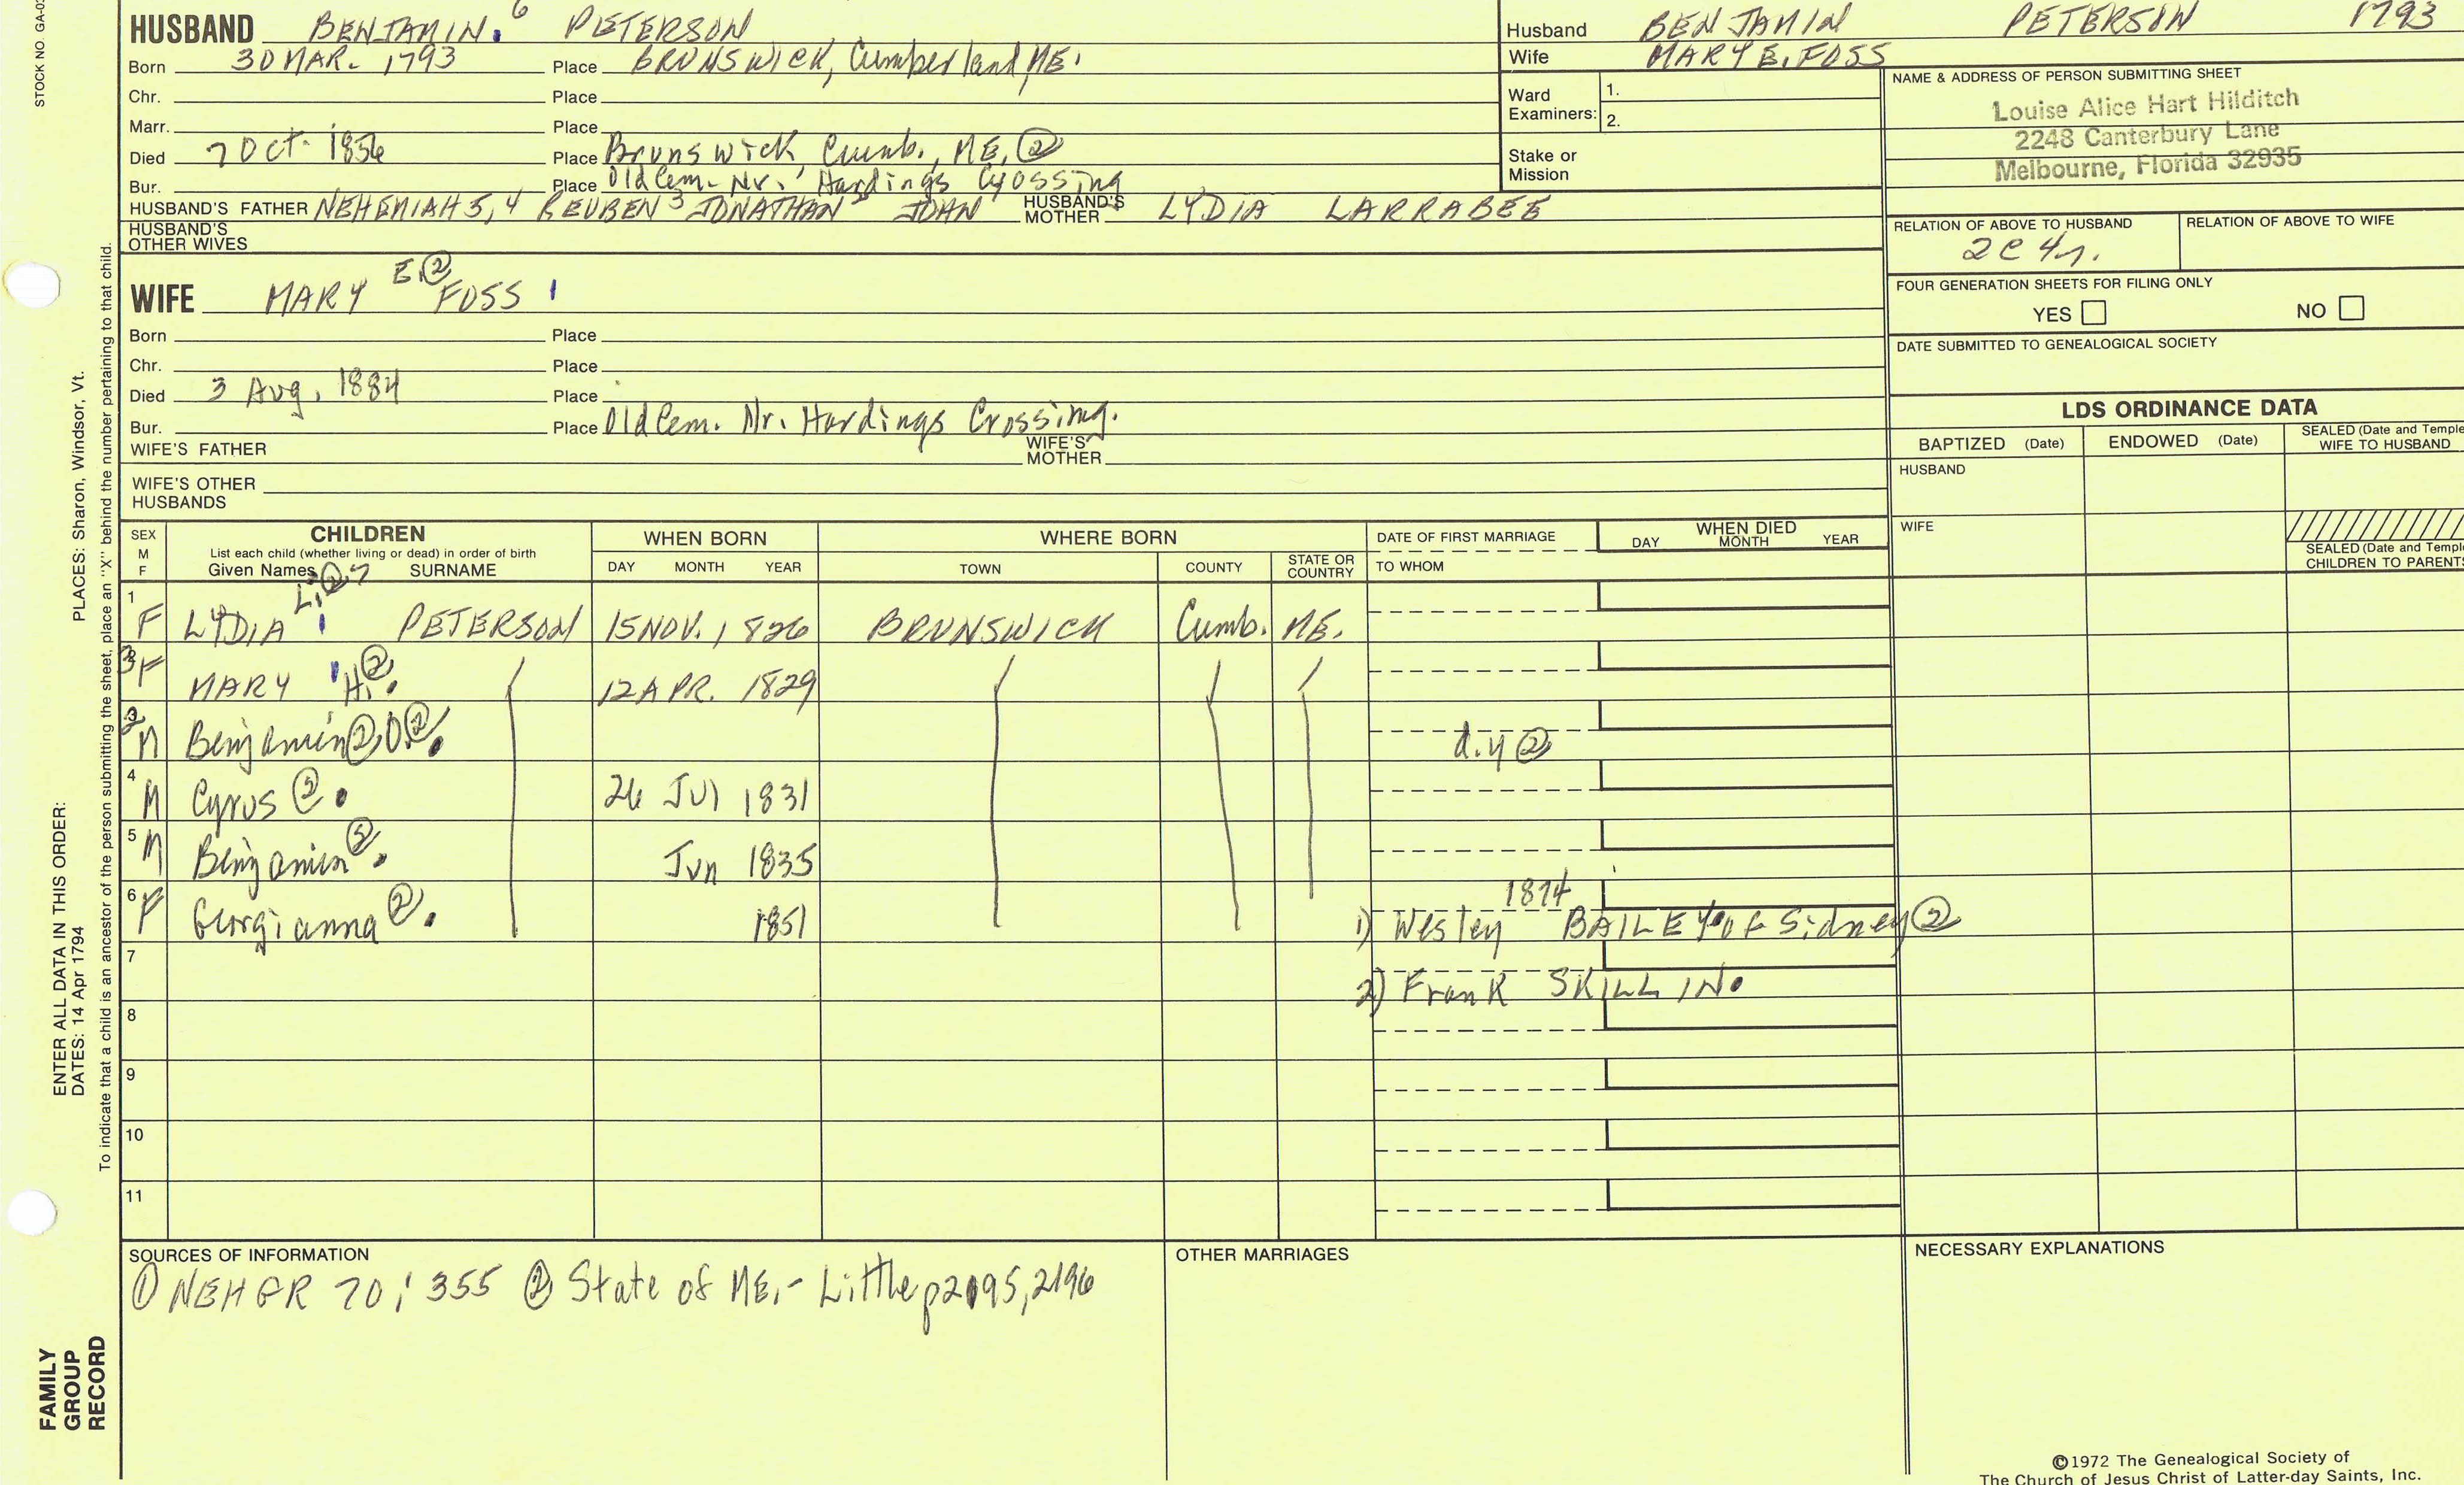 STOCK NO. GA-0
HUSBAND BENJAMIN. 6 PETERSON
Born 30 MAR. 1793 Place BRUNSWICK, Cumberland, ME.
Chr. Place
Marr. Place
Died 7 Oct. 1856 Place Brunswick, Cumb., ME, ②
Bur. Place Old Cem. Nr. Hardings Crossing
HUSBAND'S FATHER NEHEMIAH 5, 4 REUBEN 3 JONATHAN JOHN HUSBAND'S MOTHER LYDIA LARRABEE
HUSBAND'S OTHER WIVES
WIFE MARY E. ② FOSS 1
Born Place
Chr. Place
Died 3 Aug, 1884 Place
Bur. Place Old Cem. Nr. Hardings Crossing.
WIFE'S FATHER WIFE'S MOTHER
WIFE'S OTHER HUSBANDS
Husband BENJAMIN PETERSON 1793
Wife MARY E. FOSS
Ward Examiners: 1.
2.
Stake or Mission
NAME & ADDRESS OF PERSON SUBMITTING SHEET
Louise Alice Hart Hilditch
2248 Canterbury Lane
Melbourne, Florida 32935
RELATION OF ABOVE TO HUSBAND RELATION OF ABOVE TO WIFE
2c 4r.
FOUR GENERATION SHEETS FOR FILING ONLY
YES NO
DATE SUBMITTED TO GENEALOGICAL SOCIETY
LDS ORDINANCE DATA
BAPTIZED (Date) ENDOWED (Date) SEALED (Date and Temple
WIFE TO HUSBAND
HUSBAND
WIFE
SEALED (Date and Templ
CHILDREN TO PARENTS
SEX M F
CHILDREN
List each child (whether living or dead) in order of birth
Given Names SURNAME
WHEN BORN
DAY MONTH YEAR
WHERE BORN
TOWN COUNTY STATE OR COUNTRY
DATE OF FIRST MARRIAGE
TO WHOM
WHEN DIED
DAY MONTH YEAR
1 F LYDIA L. ② ? 1 PETERSON 15 NOV. 1826 BRUNSWICK Cumb. ME.
3 F MARY 1 H. ② 12 APR. 1829
2 M Benjamin ② O. ② d.y ②
4 M Cyrus ② 26 Jul 1831
5 M Benjamin ② Jun 1835
6 F Georgianna ② 1851 1874
1) Wesley BAILEY of Sidney ②
7
2) Frank SKILLIN
8
9
10
11
SOURCES OF INFORMATION
① NEHGR 70: 355 ② State of ME. - Little p2195, 2196
OTHER MARRIAGES
NECESSARY EXPLANATIONS
ENTER ALL DATA IN THIS ORDER:
DATES: 14 Apr 1794
PLACES: Sharon, Windsor, Vt.
To indicate that a child is an ancestor of the person submitting the sheet, place an "X" behind the number pertaining to that child.
FAMILY
GROUP
RECORD
©1972 The Genealogical Society of
The Church of Jesus Christ of Latter-day Saints, Inc.